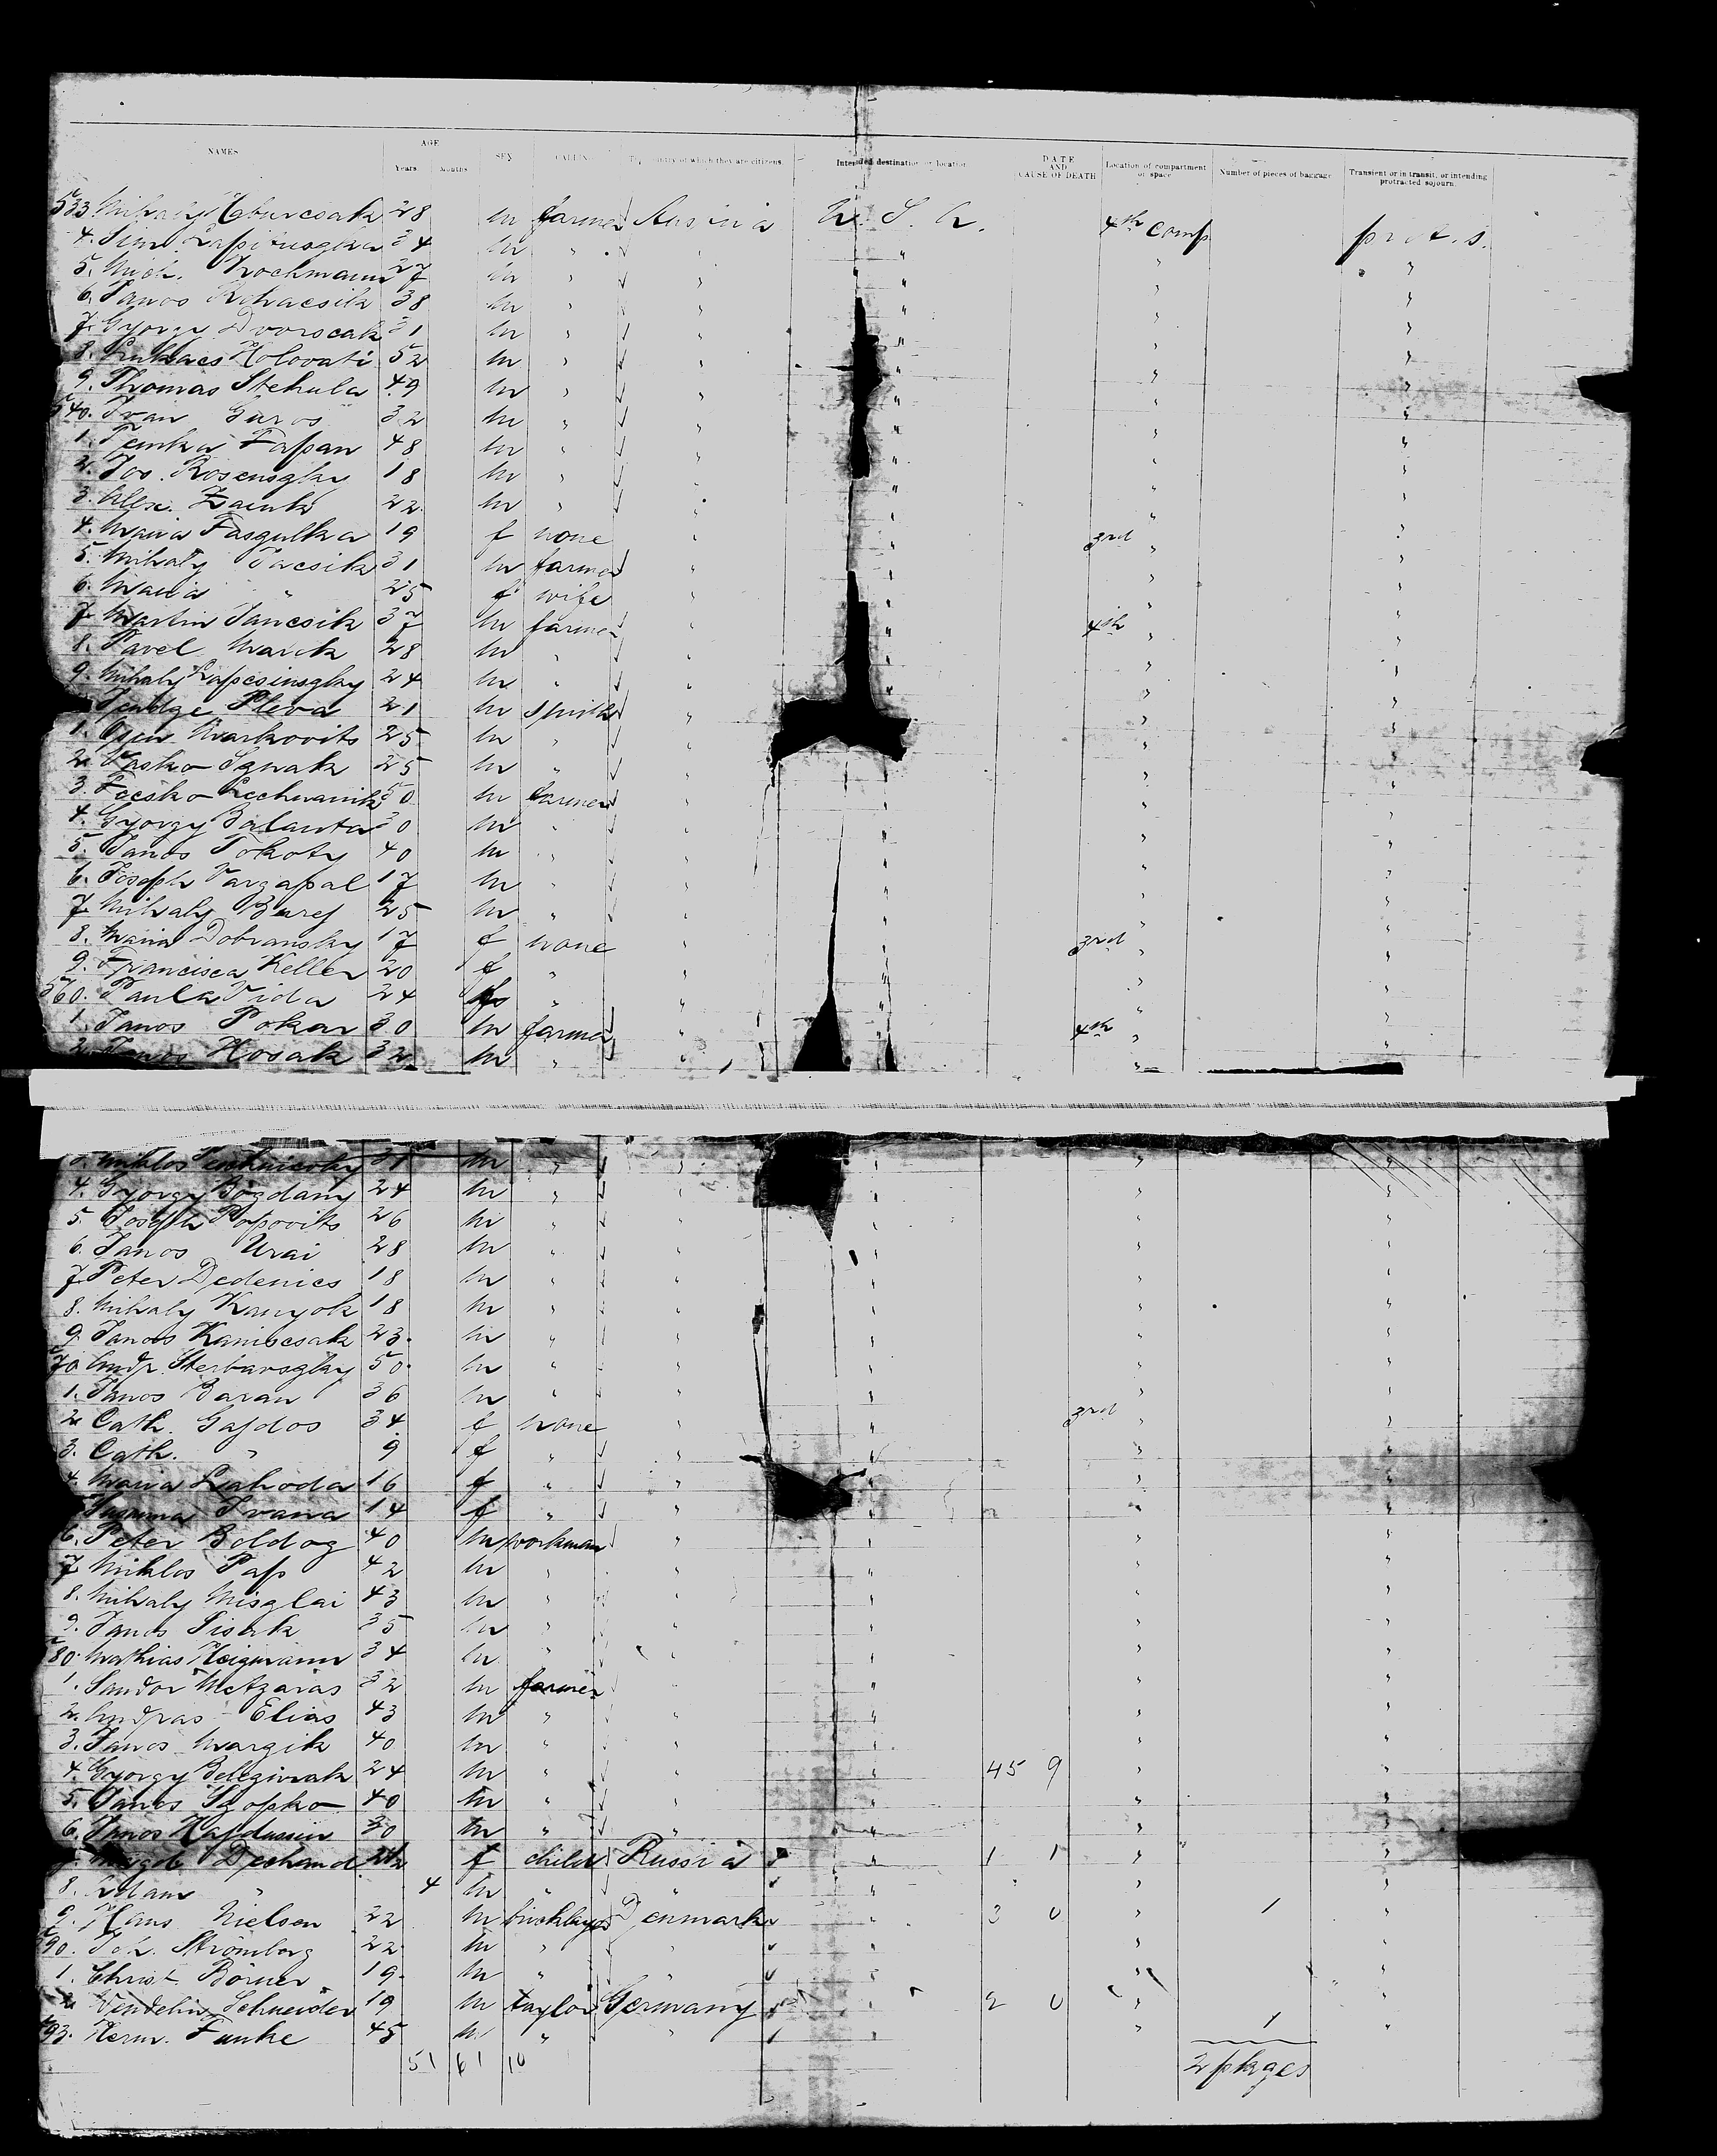 NAMES AGE Years Months SEX CALLING The country of which they are citizens Intended destination or location DATE AND CAUSE OF DEATH Location of compartment or space Number of pieces of baggage Transient or in transit, or intending protracted sojourn.
533 Mihaly Haburcsak 28 m farmer Austria U. S. A. 4th Comp prot. s.
4. 34 m " " " " "
5. Mich. Hochmann 27 m " " " " "
6. Janos Kohacsik 38 m " " " " "
7. Gyorgy Dvorscak 31 m " " " " "
8. Lukacs Holovati 52 m " " " " "
9. Thomas Stehula 49 m " " " " "
540. Ivan Guros 32 m " " " " "
1. Temka Fapan 48 m " " " " "
2. Jos. Rosenszky 18 m " " " " "
3. Alex. Zaiuk 22 m " " " " "
4. Maria Faszulka 19 f none " " 3rd " "
5. Mihaly Jacsik 31 m farmer " " " "
6. Maria " 25 f wife " " " "
7. Martin Jancsik 37 m farmer " " 4th " "
8. Pavel Marck 28 m " " " " "
9. Mihaly 24 m " " " " "
Pleva 21 m smith " " " "
1. Markovits 25 m " " " " "
2. Vasko Ignak 25 m " " " " "
3. Fecsko 30 m farmer " " " "
4. Gyorgy Balanta 30 m " " " " "
5. Janos Tokoty 40 m " " " " "
6. Joseph Vargapal 17 m " " " " "
7. Mihaly Buref 25 m " " " " "
8. Maria Dobransky 17 f none " " 3rd " "
9. Francisca Keller 20 f " " " " "
560. Paula Vida 24 " " " " "
1. Janos Pokar 30 m farmer " " 4th " "
2. Janos Hosak 32 m " " " " "
3. Miklos 31 m " " " " "
4. Gyorgy Bogdany 24 m " " " " "
5. Joseph Popovits 26 m " " " " "
6. Janos Urai 28 m " " " " "
7. Peter Dedenics 18 m " " " " "
8. Mihaly Kanyok 18 m " " " " "
9. Janos Kaniscsak 23 m " " " " "
70. Andr. Sterbanszky 50 m " " " " "
1. Janos Baran 36 m " " " " "
2. Cath. Gajdos 34 f none " " 3rd " "
3. Cath. " 9 f " " " " "
4. Maria Lahoda 16 f " " " " "
Susanna Ivana 14 f " " " " "
6. Peter Boldog 40 m workman " " " "
7. Miklos Pap 42 m " " " " "
8. Mihaly Miszlai 43 m " " " " "
9. Janos Pisak 35 m " " " " "
80. Mathias Heizmann 34 m " " " " "
1. Sandor Metzaras 32 m farmer " " " "
2. Andras Elias 43 m " " " " "
3. Janos Margik 40 m " " " " "
4. Gyorgy Beleginak 24 m " " " 45 9 " "
5. Janos Szopko 40 m " " " " "
6. Janos Hajdussin 30 m " " " " "
7. Magd. Deshand f child Russia " 1 1 " "
8. Adam " 4 m " " " " "
9. Hans Nielsen 22 m bricklayer Denmark " 3 0 " 1 "
590. Joh. Strömberg 22 m " " " " "
1. Christ. Börner 19 m " " " " "
2. Wendelin Schneider 19 m taylor Germany " 2 0 " "
593. Herm. Funke 45 m " " " 1 "
51 61 10 2 pkages